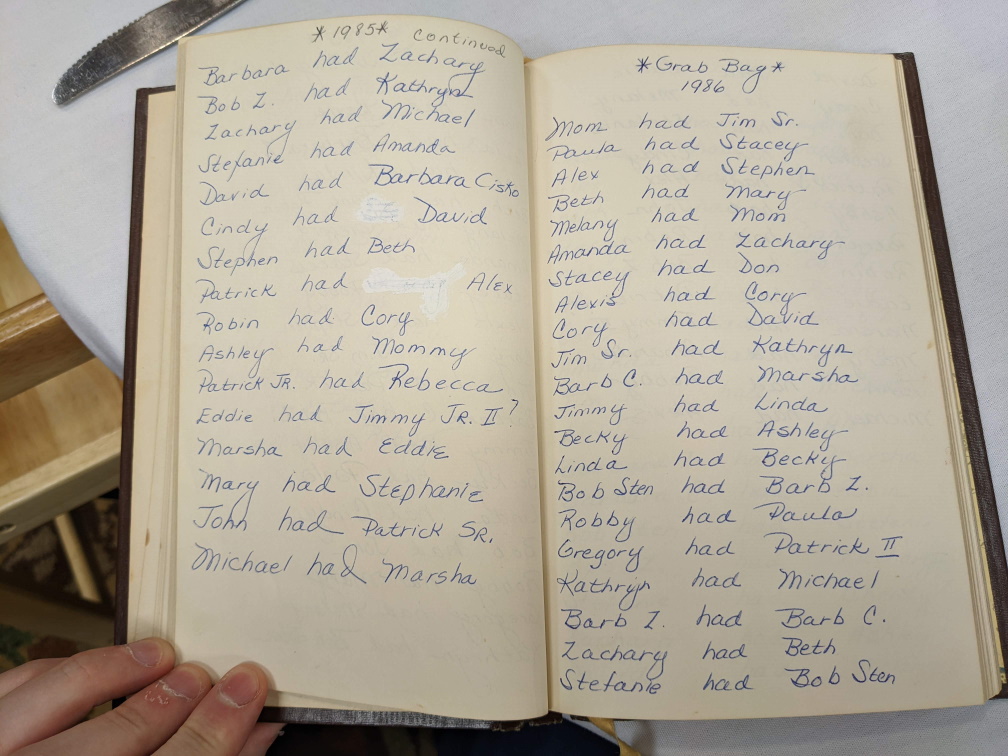 *1985* continued
Barbara had Zachary
Bob Z. had Kathryn
Zachary had Michael
Stefanie had Amanda
David had Barbara Cisko
Cindy had David
Stephen had Beth
Patrick had Alex
Robin had Cory
Ashley had Mommy
Patrick JR. had Rebecca
Eddie had Jimmy JR. II?
Marsha had Eddie
Mary had Stephanie
John had Patrick SR.
Michael had Marsha
*Grab Bag*
1986
Mom had Jim Sr.
Paula had Stacey
Alex had Stephen
Beth had Mary
Melany had Mom
Amanda had Zachary
Stacey had Don
Alexis had Cory
Cory had David
Jim Sr. had Kathryn
Barb C. had Marsha
Jimmy had Linda
Becky had Ashley
Linda had Becky
Bob Sten had Barb Z.
Robby had Paula
Gregory had Patrick II
Kathryn had Michael
Barb Z. had Barb C.
Zachary had Beth
Stefanie had Bob Sten